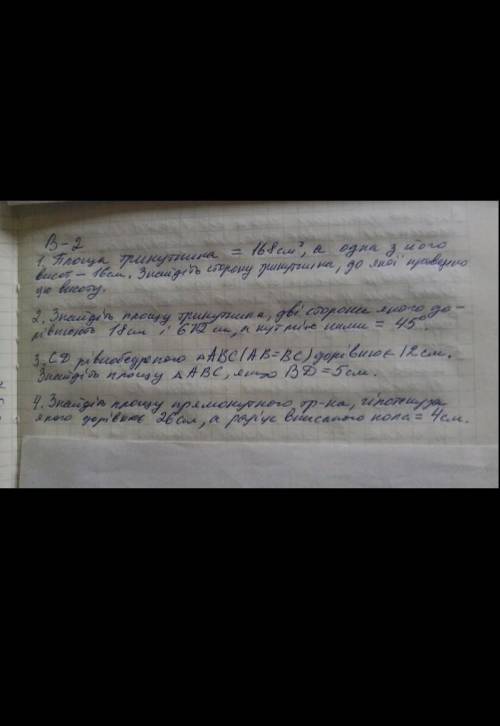 В-2
1. Площа трикутника = 168см², а одна з його
висот - 16см. Знайдіть сторону трикутника, до якої проведено
цю висоту.
2. Знайдіть площу трикутника, дві сторони якого до-
рівнюють 18см і 6√2 см, а кут між ними = 45°.
3. CD рівнобедреного △ABC (AB=BC) дорівнює 12см.
Знайдіть площу △ABC, якщо BD=5см.
4. Знайдіть площу прямокутного тр-ка, гіпотенуза
якого дорівнює 26см, а радіус вписаного кола = 4см.